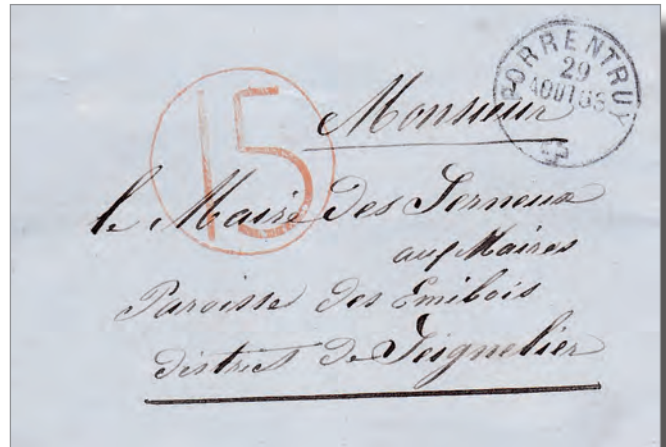 PORRENTRUY
29
AOUT 65
15
Monsieur
le Maire des Ferneux
aux Maires
Paroisse des Emibois
district de Seignelier